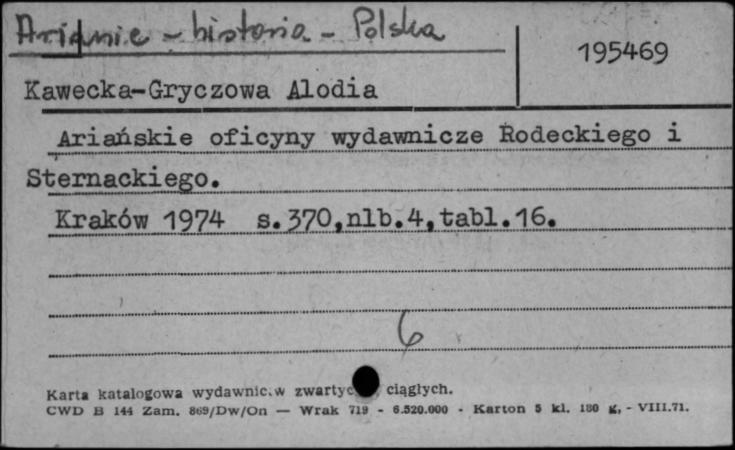 Arianie - historia - Polska
195469
Kawecka-Gryczowa Alodia
Ariańskie oficyny wydawnicze Rodeckiego i
Sternackiego.
Kraków 1974 s.370,nlb.4,tabl.16.
6
Karta katalogowa wydawnic.w zwartyc ciągłych.
CWD B 144 Zam. 869/Dw/On — Wrak 719 - 6.520.000 - Karton 5 kl. 180 g, - VIII.71.